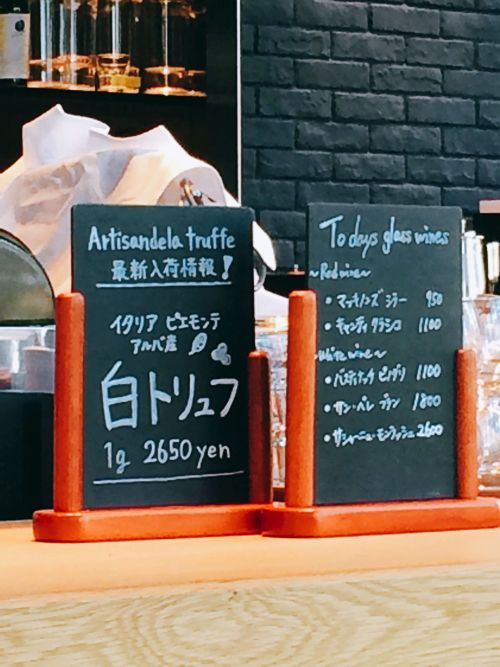 Artisandela truffe
最新入荷情報!
イタリア ピエモンテ
アルバ産
白トリュフ
1g 2650 yen
Todays glass wines
~Red wine~
・マッキノンズ シラー 950
・キャンティ クラシコ 1100
~White wine~
1100
・サン・ペレ ブラン 1800
2600